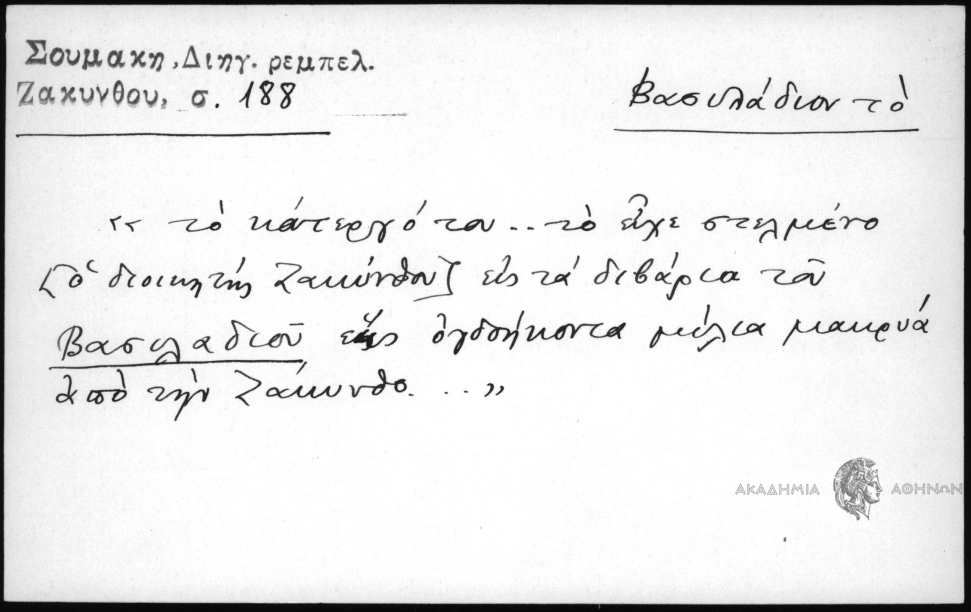 Σουμακη, Διηγ. ρεμπελ.
Ζακυνθου, σ. 188
Βασιλάδιον τὸ
« τὸ κάτεργό του .. τὸ εἶχε στελμένο
[ὁ διοικητής Ζακύνθου] εἰς τά διβάρια τοῦ
Βασιλαδιοῦ ὀγδοήκοντα μίλια μακρυά
ἀπὸ τὴν Ζάκυνθο. . .. »
ΑΚΑΔΗΜΙΑ ΑΘΗΝΩΝ